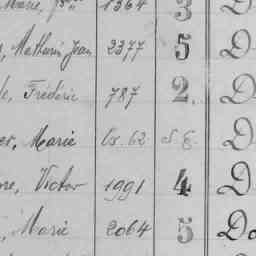 Marie, 1364 3 D
, Mathurin Jean 2377 5 D
Frédéric 787 2. D
Marie Cs. 62 S. E. D
Victor 1991 4 D
, Marie 2064 5 Do